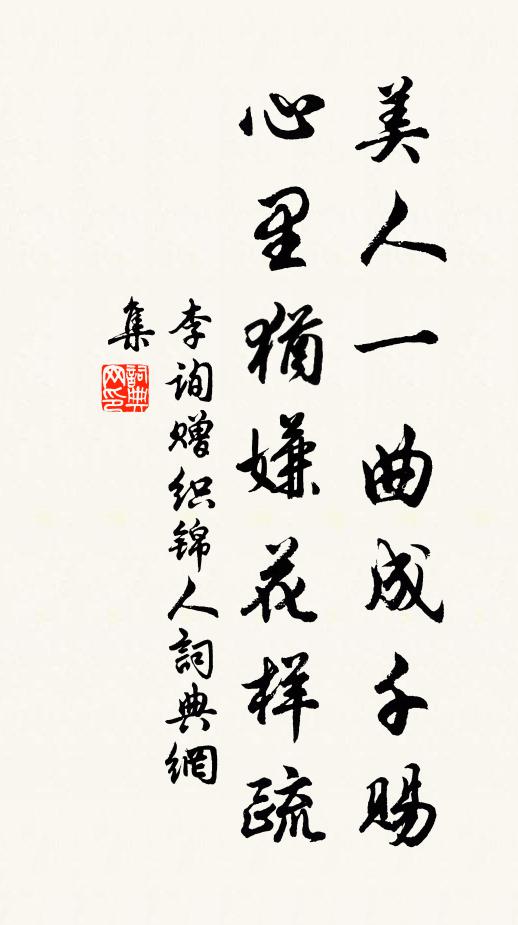 美人一曲成千赐
心里犹嫌花样疏
李询赠织锦人詞典網
集
詞典
网印